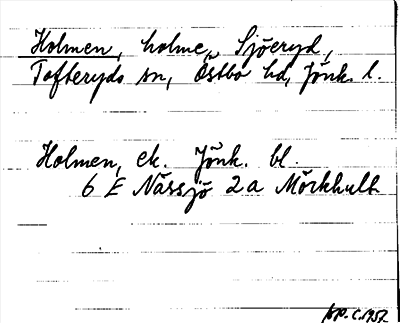 Holmen, holme, Sjöeryd,
Tofteryds sn, Östbo hd, Jönk. l.
Holmen, ek. Jönk. bl.
6 E Nässjö 2a Mörkhult
1957